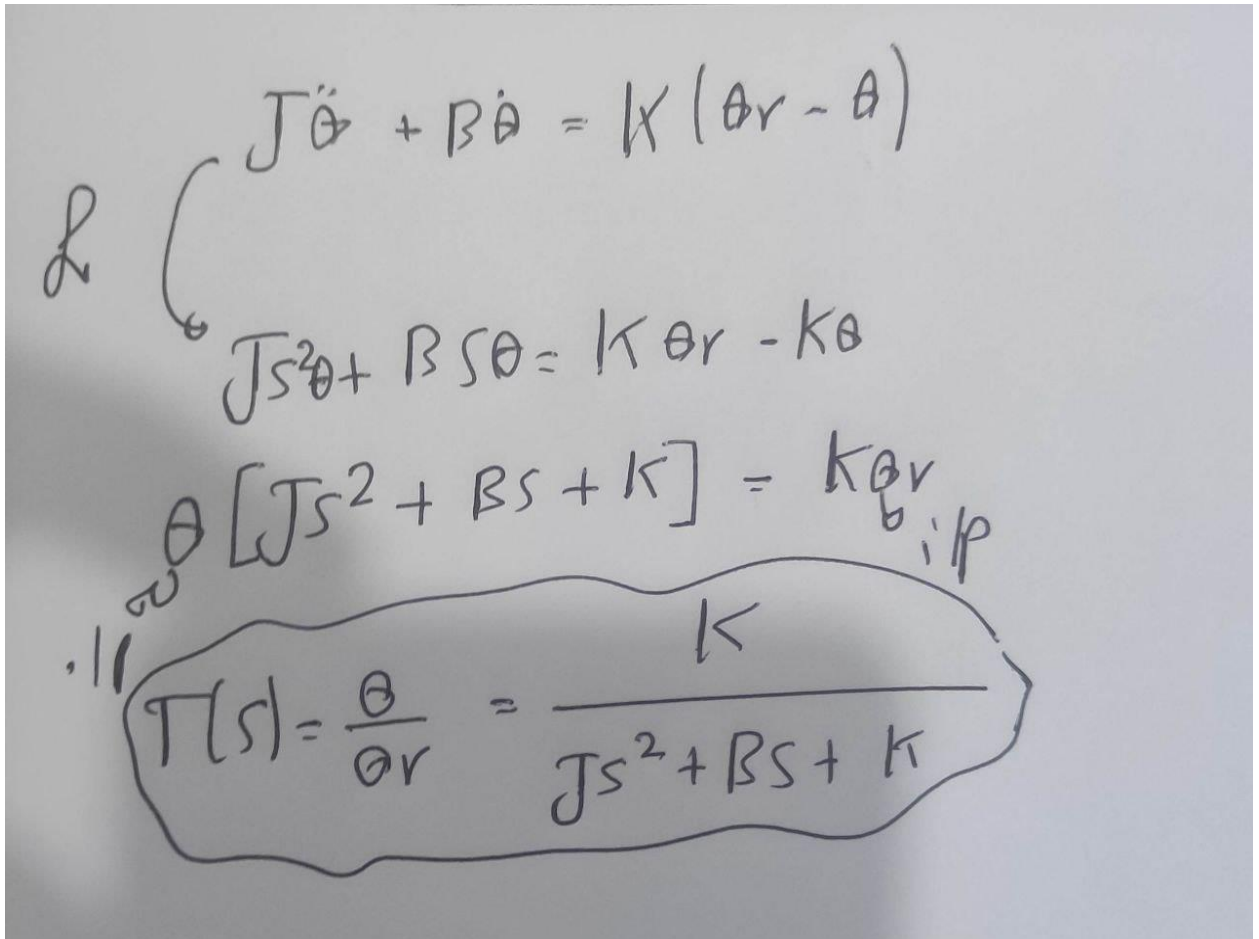 Jθ̈ + Bθ̇ = K(θr - θ)
ℒ
Js²θ + BSθ = Kθr - Kθ
θ[Js² + BS + K] = Kθr
i/p
T(S) = θ/θr = K/(Js² + BS + K)